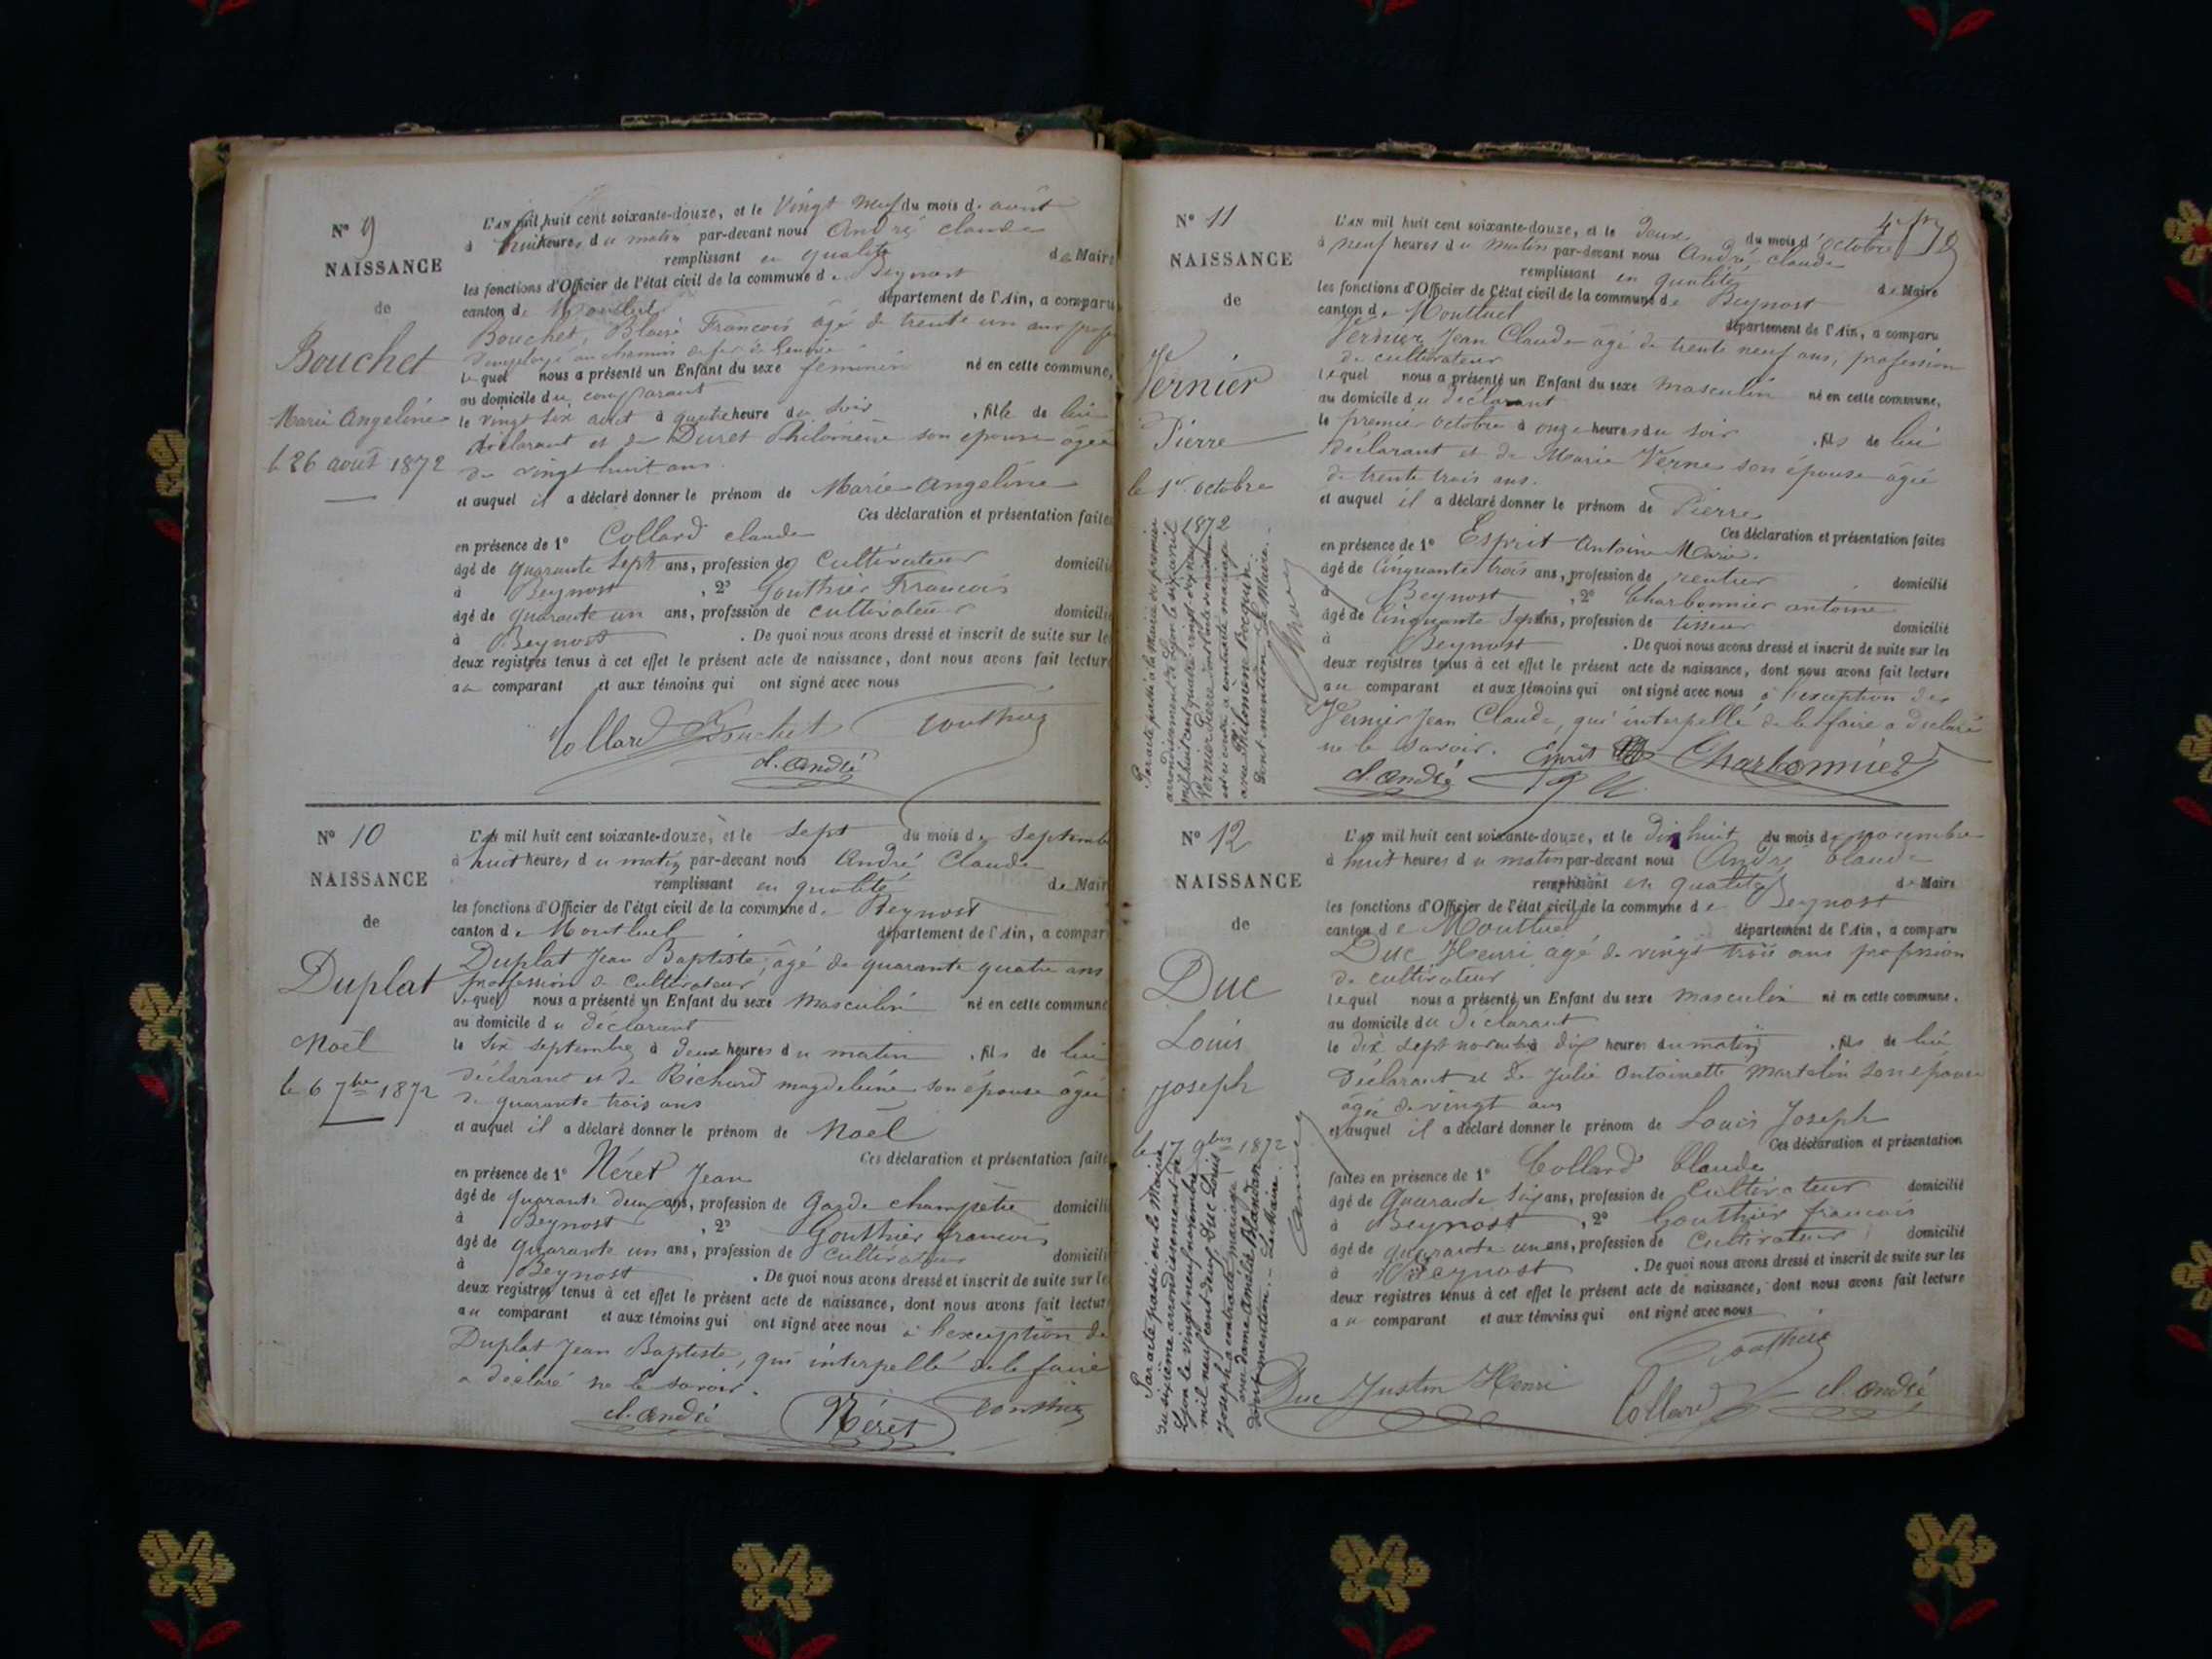 N° 9
NAISSANCE
de
Bouchet
Marie Angeline
le 26 août 1872
L'AN mil huit cent soixante-douze, et le Vingt neuf du mois de août
à huit heures du matin par-devant nous André Claude
remplissant en qualité de Maire
les fonctions d'Officier de l'état civil de la commune de Beynost
canton de Montluel département de l'Ain, a comparu
Bouchet, Blaise François âgé de trente un ans profe
d'employé au chemin de fer de Genève
lequel nous a présenté un Enfant du sexe féminin né en cette commune,
au domicile du comparant
le vingt six août à quatre heure du soir, fille de lui
déclarant et de Duret Philomène son épouse âgée
de vingt huit ans
et auquel il a déclaré donner le prénom de Marie Angeline
Ces déclaration et présentation faites
en présence de 1° Collard Claude
âgé de quarante sept ans, profession de Cultivateur domicilié
à Beynost, 2° Gouthier François
âgé de quarante un ans, profession de cultivateur domicilié
à Beynost. De quoi nous avons dressé et inscrit de suite sur le
deux registres tenus à cet effet le présent acte de naissance, dont nous avons fait lecture
au comparant et aux témoins qui ont signé avec nous
Collard Bouchet Gouthier
cl. André
N° 10
NAISSANCE
de
Duplat
Noël
le 6 7bre 1872
L'AN mil huit cent soixante-douze, et le sept du mois de Septembre
à huit heures du matin par-devant nous André Claude
remplissant en qualité de Mair
les fonctions d'Officier de l'état civil de la commune de Beynost
canton de Montluel département de l'Ain, a compar
Duplat Jean Baptiste, âgé de quarante quatre ans
profession de cultivateur
lequel nous a présenté un Enfant du sexe Masculin né en cette commune
au domicile du déclarant
le six septembre à deux heures du matin, fils de lui
déclarant et de Richard magdeleine son épouse âgée
de quarante trois ans
et auquel il a déclaré donner le prénom de Noël
Ces déclaration et présentation faite
en présence de 1° Néret Jean
âgé de quarante deux ans, profession de Garde champêtre domicilié
à Beynost, 2° Gouthier françois
âgé de quarante un ans, profession de cultivateur domicili
à Beynost. De quoi nous avons dressé et inscrit de suite sur le
deux registres tenus à cet effet le présent acte de naissance, dont nous avons fait lectur
au comparant et aux témoins qui ont signé avec nous à l'exception de
Duplat Jean Baptiste, qui interpellé de le faire
a déclaré ne le savoir.
cl. André Néret Gouthier
N° 11
NAISSANCE
de
Vernier
Pierre
le 1er octobre
1872
Par acte passé à la mairie du premier
arrondissement de Lyon le six avril
mil huit cent quatre vingt dix neuf
Vernier Pierre
inscrit ci contre a contracté mariage
avec Philomène Bocquin.
Dont mention. Le Maire.
L'AN mil huit cent soixante-douze, et le Deux du mois d'Octobre
à neuf heures du matin par-devant nous André Claude
remplissant en qualité de Maire
les fonctions d'Officier de l'état civil de la commune de Beynost
canton de Montluel département de l'Ain, a comparu
Vernier Jean Claude âgé de trente neuf ans, profession
de cultivateur
lequel nous a présenté un Enfant du sexe masculin né en cette commune,
au domicile du déclarant
le premier octobre à onze heures du soir, fils de lui
déclarant et de Marie Verne son épouse âgée
de trente trois ans.
et auquel il a déclaré donner le prénom de Pierre
Ces déclaration et présentation faites
en présence de 1° Esprit Antoine Marie.
âgé de Cinquante trois ans, profession de rentier domicilié
à Beynost, 2° Charbonnier antoine
âgé de Cinquante Sept ans, profession de tisseur domicilié
à Beynost. De quoi nous avons dressé et inscrit de suite sur les
deux registres tenus à cet effet le présent acte de naissance, dont nous avons fait lecture
au comparant et aux témoins qui ont signé avec nous à l'exception de
Vernier Jean Claude, qui interpellé de le faire a déclaré
ne le savoir. Esprit Charbonnier
cl. André
N° 12
NAISSANCE
de
Duc
Louis
Joseph
le 17 9bre 1872
Par acte passé en la Mairie
du sixième arrondissement de
Lyon le vingt neuf novembre
mil neuf cent deux, Duc Louis
Joseph a contracté mariage
avec dame Amélie Blandan
dont mention. Le Maire.
L'AN mil huit cent soixante-douze, et le dix huit du mois de novembre
à huit heures du matin par-devant nous André Claude
remplissant en qualité de Maire
les fonctions d'Officier de l'état civil de la commune de Beynost
canton de Montluel département de l'Ain, a comparu
Duc Henri âgé de vingt trois ans profession
de cultivateur
lequel nous a présenté un Enfant du sexe masculin né en cette commune,
au domicile du déclarant
le dix sept novembre à dix heures du matin, fils de lui
Déclarant et de Julie Antoinette Martelin son épouse
âgée de vingt ans
et auquel il a déclaré donner le prénom de Louis Joseph
Ces déclaration et présentation
faites en présence de 1° Collard Claude
âgé de quarante six ans, profession de Cultivateur domicilié
à Beynost, 2° Gouthier francois
âgé de quarante un ans, profession de Cultivateur domicilié
à Beynost. De quoi nous avons dressé et inscrit de suite sur les
deux registres tenus à cet effet le présent acte de naissance, dont nous avons fait lecture
au comparant et aux témoins qui ont signé avec nous
Gouthier
Duc Justin Henri Collard cl. André